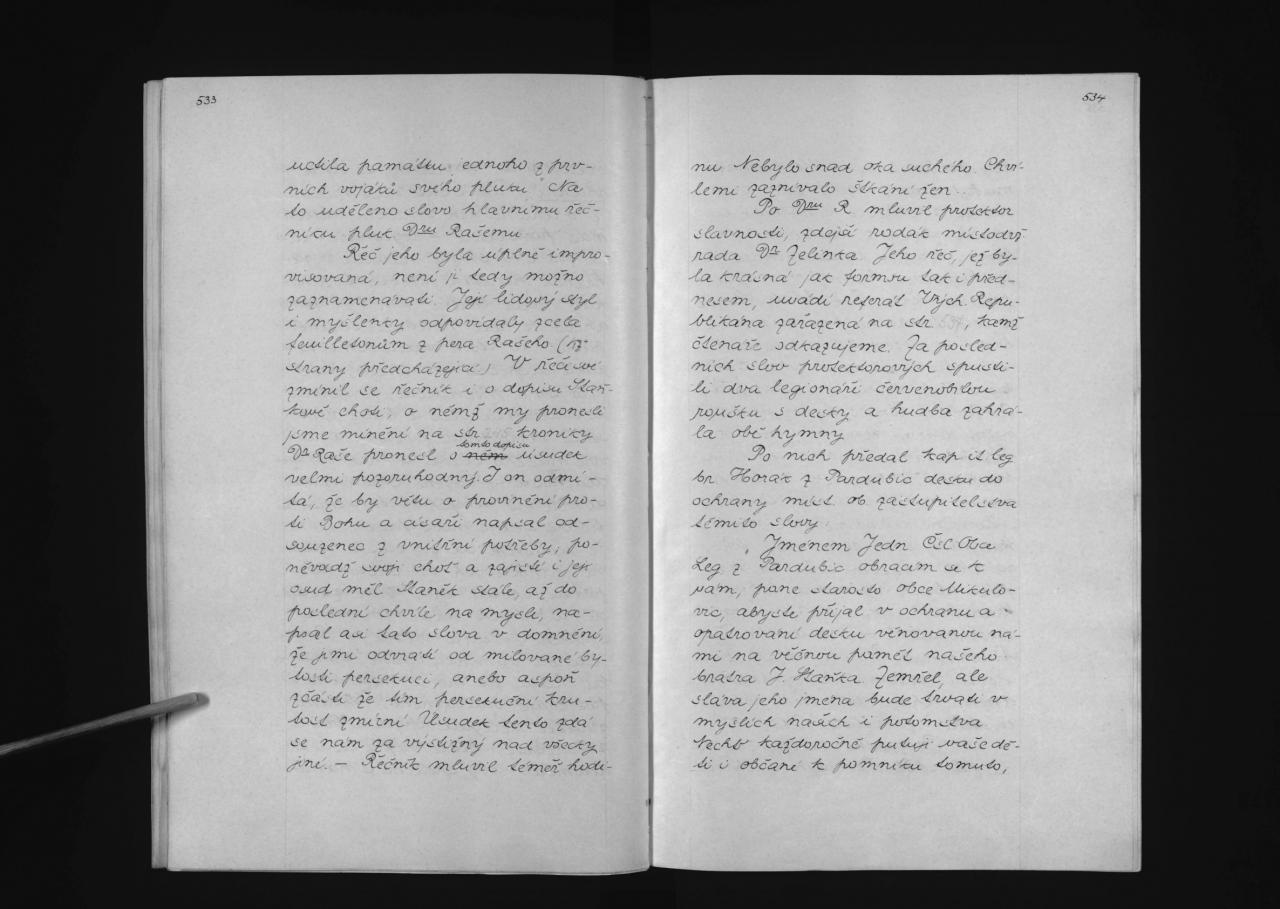 533
uctila památku jednoho z prv-
ních vojáků svého pluku. Na
to uděleno slovo hlavnímu řeč-
níku pluk. Dru Rašemu.
Řeč jeho byla úplně impro-
visovaná, není ji tedy možno
zaznamenávati. Její lidový styl
i myšlenky odpovídaly zcela
feuilletonům z pera Rašeho (viz
strany předcházející). V řeči své
zmínil se řečník i o dopisu Staň-
kově choti, o němž my pronesli
jsme mínění na str. kroniky.
Dr. Raše pronesl o tomto dopisu
něm úsudek
velmi pozoruhodný. I on odmí-
tá, že by větu o provinění pro-
ti Bohu a císaři napsal od-
souzenec z vnitřní potřeby, po-
něvadž svoji choť a zajisté i její
osud měl Staněk stále, až do
poslední chvíle na mysli, na-
psal asi tato slova v domnění,
že jimi odvrátí od milované by-
tosti persekuci, anebo aspoň
zčásti že tím persekuční kru-
tost zmírní. Úsudek tento zdá
se nám za výstižný nad všecky
jiné. — Řečník mluvil téměř hodi-
534
nu. Nebylo snad oka suchého. Chví-
lemi zaznívalo štkání žen.
Po Dru R. mluvil protektor
slavnosti, zdejší rodák místodrž.
rada Dr. Zelinka. Jeho řeč, jež by-
la krásná jak formou tak i před-
nesem, uvádí referát Vých. Repu-
blikána zařazená na str. 537, kamž
čtenáře odkazujeme. Za posled-
ních slov protektorových spusti-
li dva legionáři červenobílou
roušku s desky a hudba zahrá-
la obě hymny.
Po nich předal kap. it. leg.
br. Horák z Pardubic desku do
ochrany míst. ob. zastupitelstva
těmito slovy:
„Jménem Jedn. Čsl. Obce
Leg. z Pardubic obracím se k
vám, pane starosto obce Mikulo-
vic, abyste přijal v ochranu a
opatrování desku věnovanou ná-
mi na věčnou paměť našeho
bratra J. Staňka. Zemřel, ale
sláva jeho jména bude trvati v
myslích našich i potomstva.
Nechť každoročně putují vaše dě-
ti i občané k pomníku tomuto,